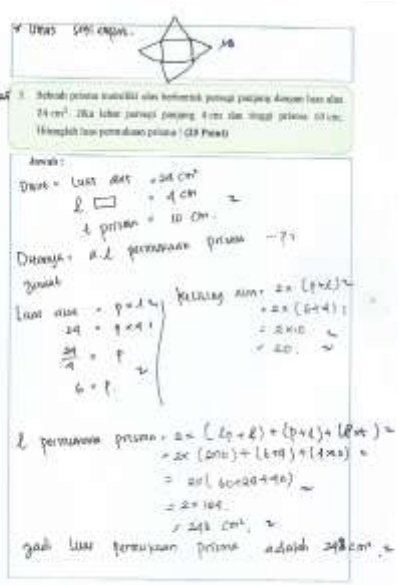 * Limas segi empat.
3. Sebuah prisma memiliki alas berbentuk persegi panjang dengan luas alas
24 cm². Jika lebar persegi panjang 4 cm dan tinggi prisma 10 cm.
Hitunglah luas permukaan prisma ! (20 Point)
Jawab :
Luas alas = 24 cm²
l = 4 cm
t prisma = 10 cm.
Ditanya = permukaan prisma ...?
Jawab
Luas alas = p x l
24 = p x 4
24/4 = p
6 = p.
Keliling alas = 2 x (p+l)
= 2 x (6+4)
= 2 x 10
= 20.
L permukaan prisma = 2 x
= 2x
= 2x (60+24+40)
= 2 x 124.
= 248 cm².
Jadi luas permukaan prisma adalah 248 cm².